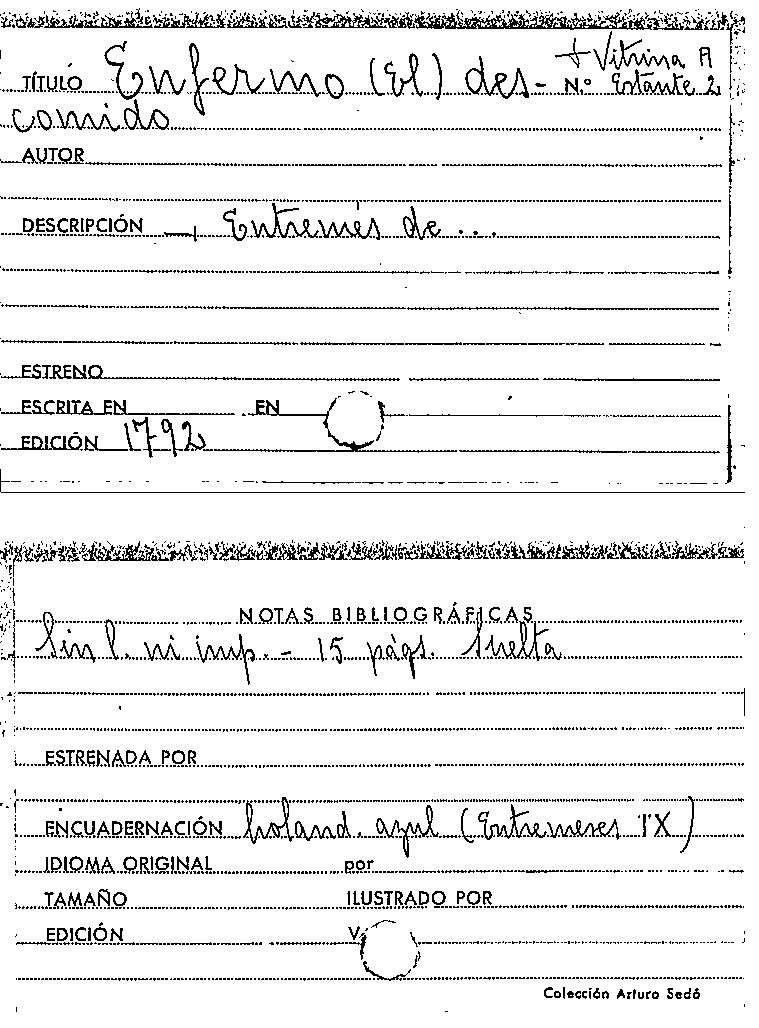 + Vitrina A
TÍTULO Enfermo (El) des- N.º Estante 2
comido
AUTOR
DESCRIPCIÓN — Entremés de ...
ESTRENO
ESCRITA EN EN
EDICIÓN 1792
NOTAS BIBLIOGRÁFICAS
Sin l. ni imp. - 15 págs. Suelta
ESTRENADA POR
ENCUADERNACIÓN holand. azul (Entremeses IX)
IDIOMA ORIGINAL por
TAMAÑO ILUSTRADO POR
EDICIÓN V.
Colección Arturo Sedó